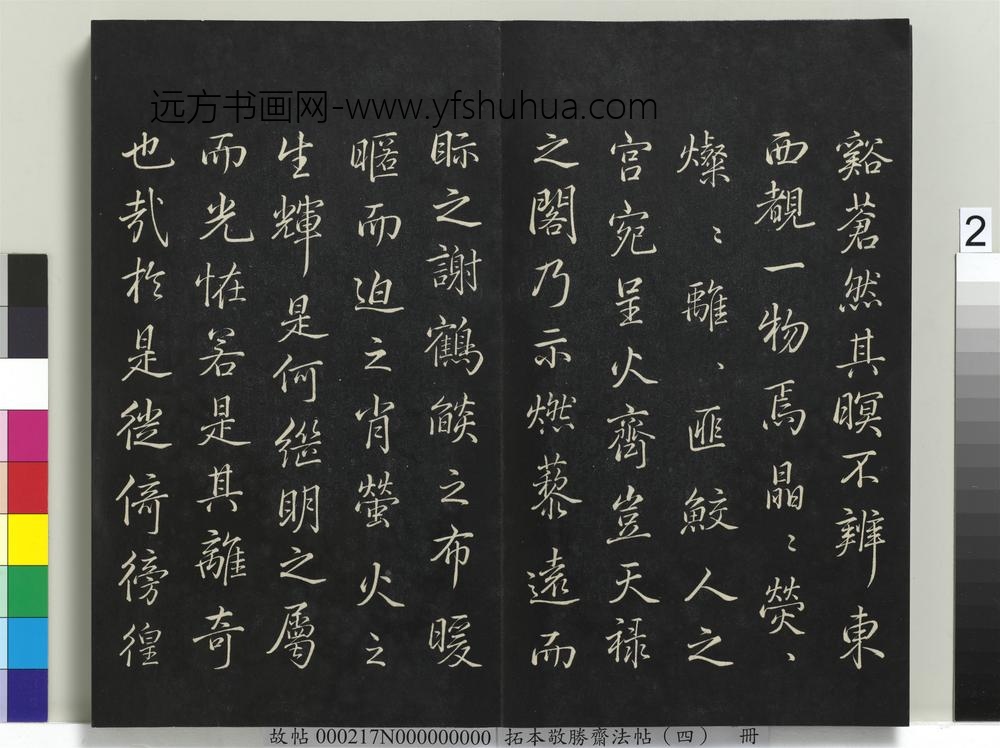 远方书画网-www.yfshuhua.com
谿蒼然其暝不辨東
西覩一物焉晶〻熒、
燦〻離、匪鮫人之
宮宛呈火齊豈天祿
之閣乃示燃藜遠而
眎之謝鶴燄之布暖
暱而迫之肖螢火之
生輝是何繼明之屬
而光怪若是其離奇
也哉於是徙倚徬徨
2
故帖 000217N000000000 拓本敬勝齋法帖（四） 冊